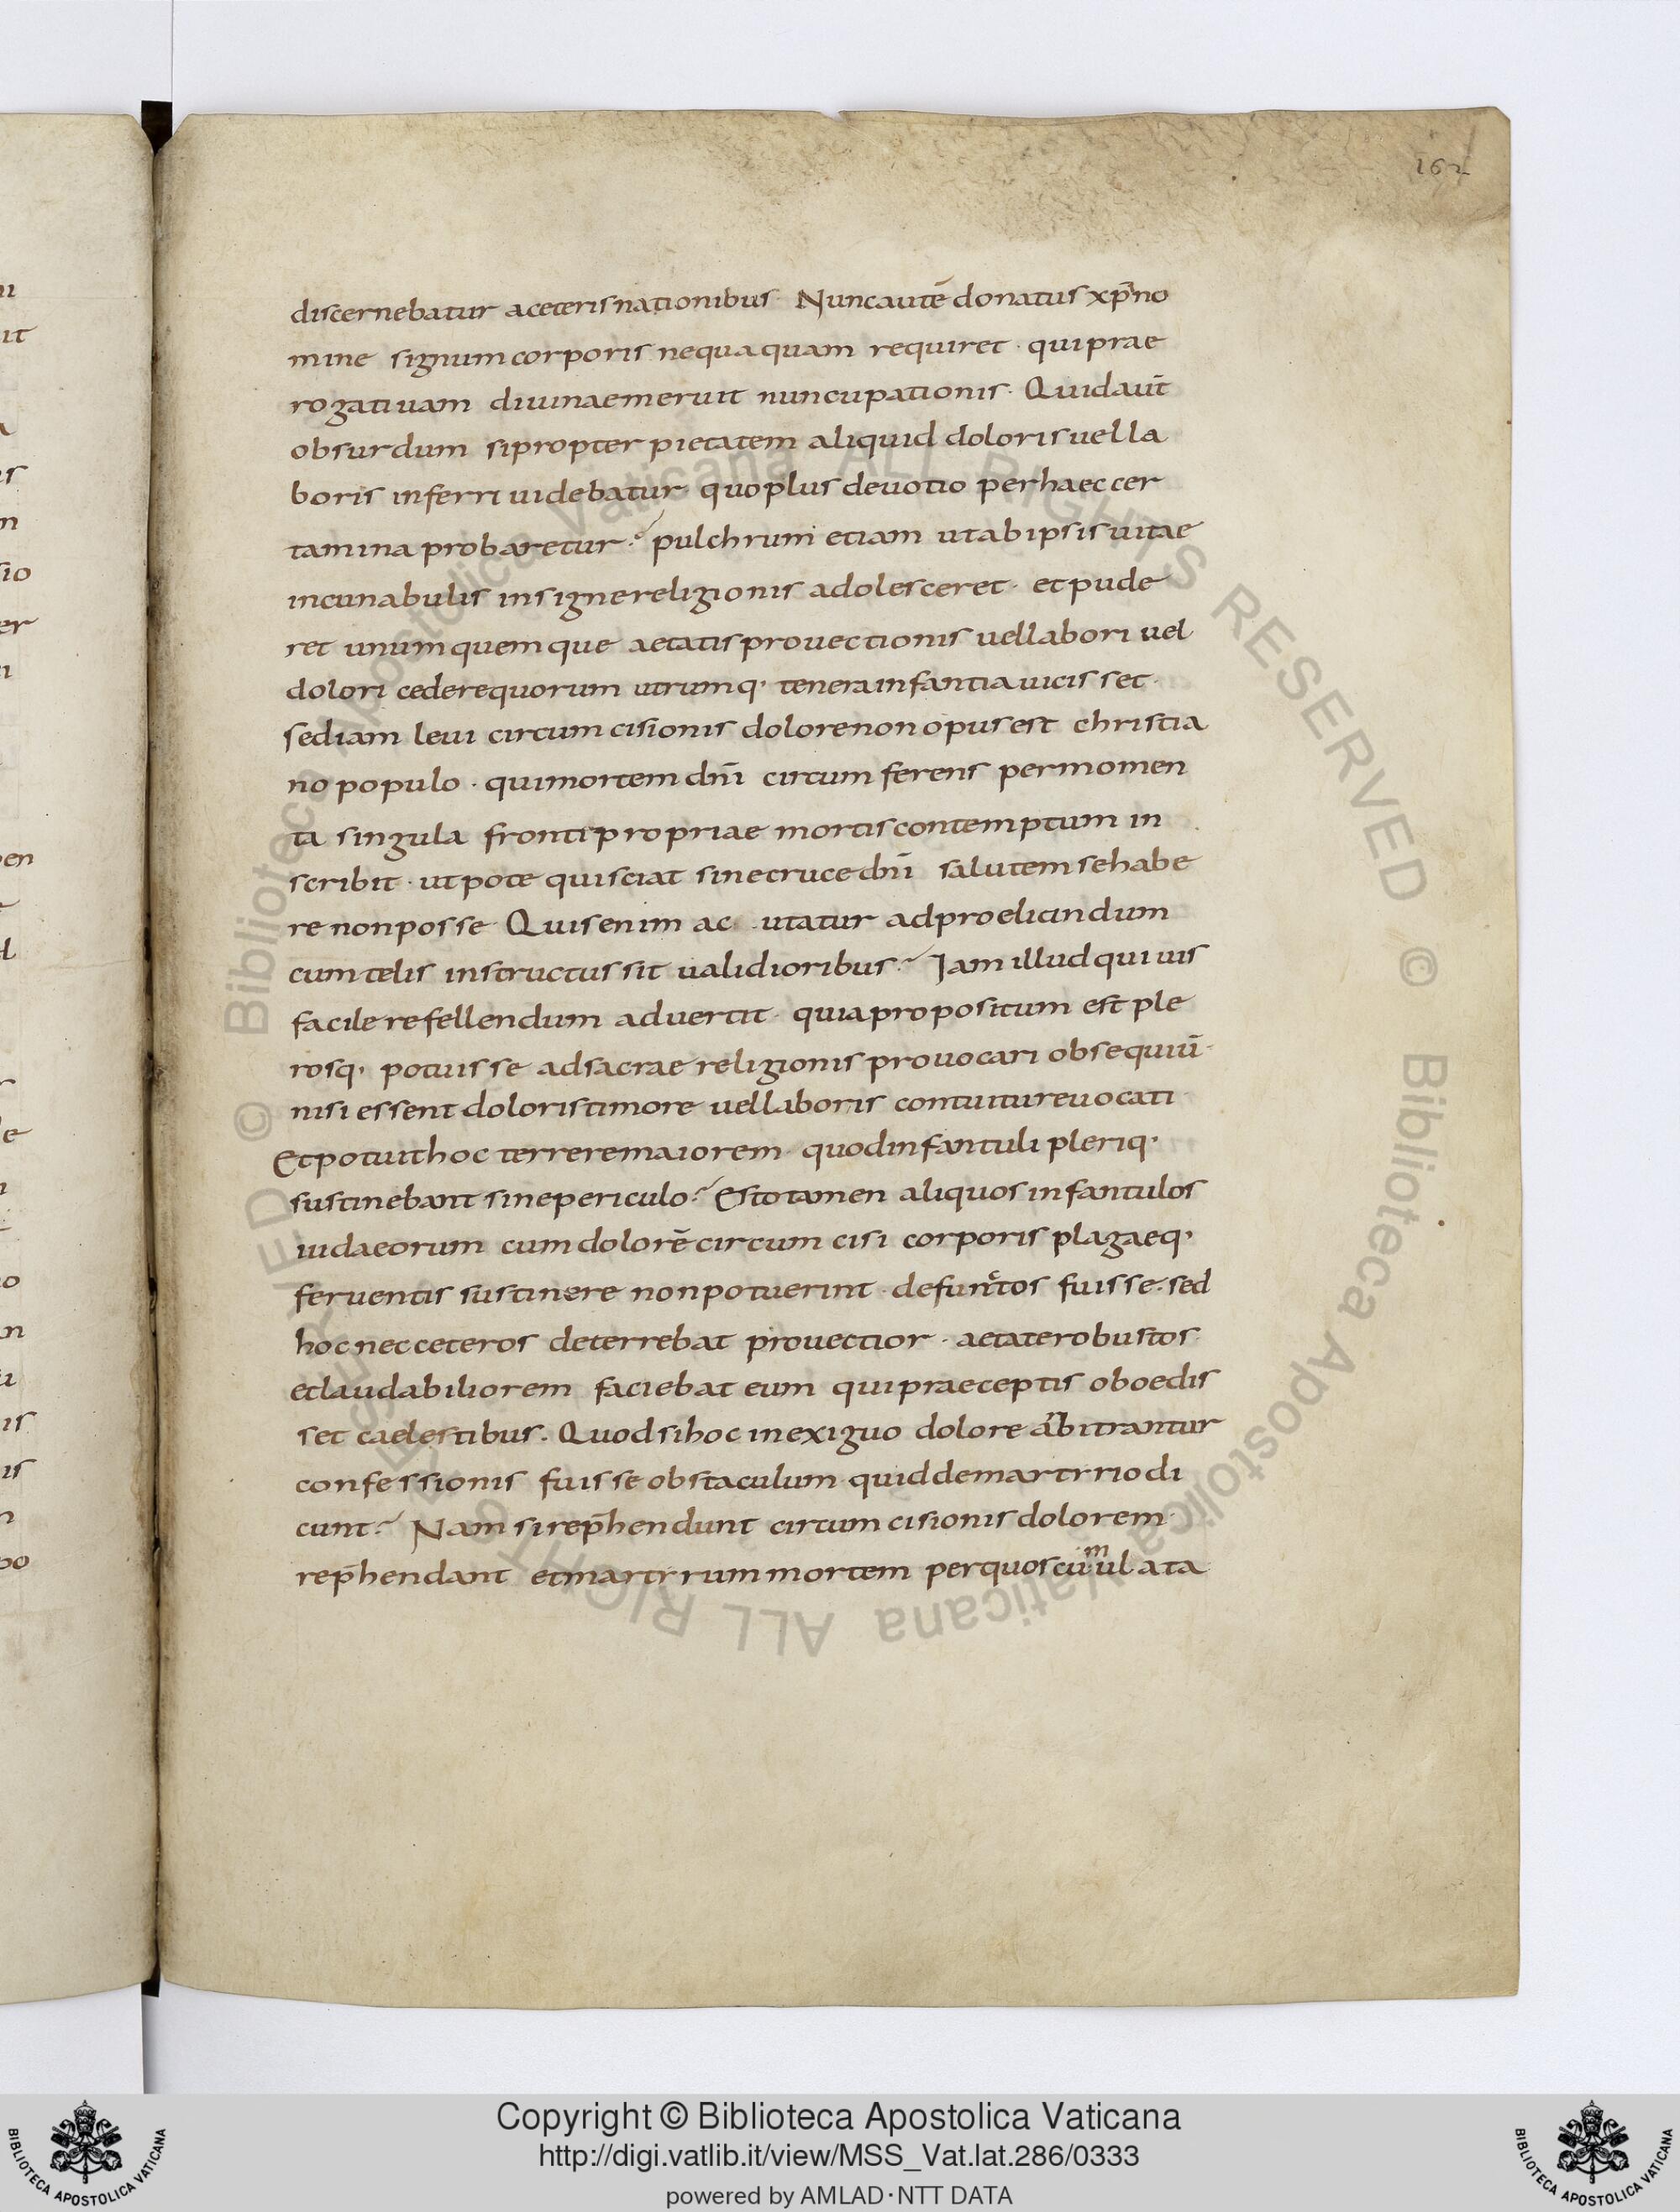 162
discernebatur a ceteris nationibus· Nunc autē donatus xp̄i no
mine signum corporis nequaquam requiret· qui prae
rogatiuam diuinae meruit nuncupationis· Quid aut̄
obsurdum si propter pietatem aliquid doloris uel la
boris inferri uidebatur· quo plus deuotio per haec cer
tamina probaretur? pulchrum etiam ut ab ipsis uitae
incunabulis insigne religionis adolesceret· et pude
ret unumquemque aetatis prouectionis uel labori uel
dolori cedere quorum utrumq· tenera infantia uicisset·
sed iam leui circumcisionis dolore non opus est christia
no populo· qui mortem dn̄i circumferens per momen
ta singula fronti propriae mortis contemptum in
scribit· utpote qui sciat sine cruce dn̄i salutem se habe
re non posse Quis enim ac utatur ad proeliandum
cum telis instructus sit ualidioribus? Jam illud qui uis
facile refellendum aduertit· quia propositum est ple
rosq· potuisse ad sacrae religionis prouocari obsequiū·
nisi essent doloris timore uel laboris contuitu reuocati·
Et potuit hoc terrere maiorem· quod infantuli pleriq·
sustinebant sine periculo? Esto tamen aliquos infantulos
iudaeorum cum dolorē circumcisi corporis plagaeq·
feruentis sustinere non potuerint· defunctos fuisse· sed
hoc nec ceteros deterrebat prouectior· aetate robustos·
et laudabiliorem faciebat eum qui praeceptis oboedis
set caelestibus· Quod si hoc in exiguo dolore arbitrantur
confessionis fuisse obstaculum quid de martyrio di
cunt? Nam si rep̄hendunt circumcisionis dolorem·
rep̄hendant et martyrum mortem per quos cumulata
Copyright © Biblioteca Apostolica Vaticana
http://digi.vatlib.it/view/MSS_Vat.lat.286/0333
powered by AMLAD·NTT DATA
BIBLIOTECA APOSTOLICA VATICANA
BIBLIOTECA APOSTOLICA VATICANA